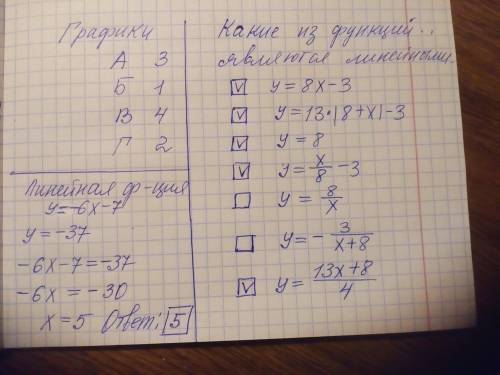 Графики
А 3
Б 1
В 4
Г 2
Линейная ф-ция
y=-6x-7
y=-37
-6x-7=-37
-6x=-30
x=5 Ответ: 5
Какие из функций..
являются линейными.
v y=8x-3
v y=13·(8+x)-3
v y=8
v y=x/8-3
y=8/x
y=-3/(x+8)
v y=(13x+8)/4